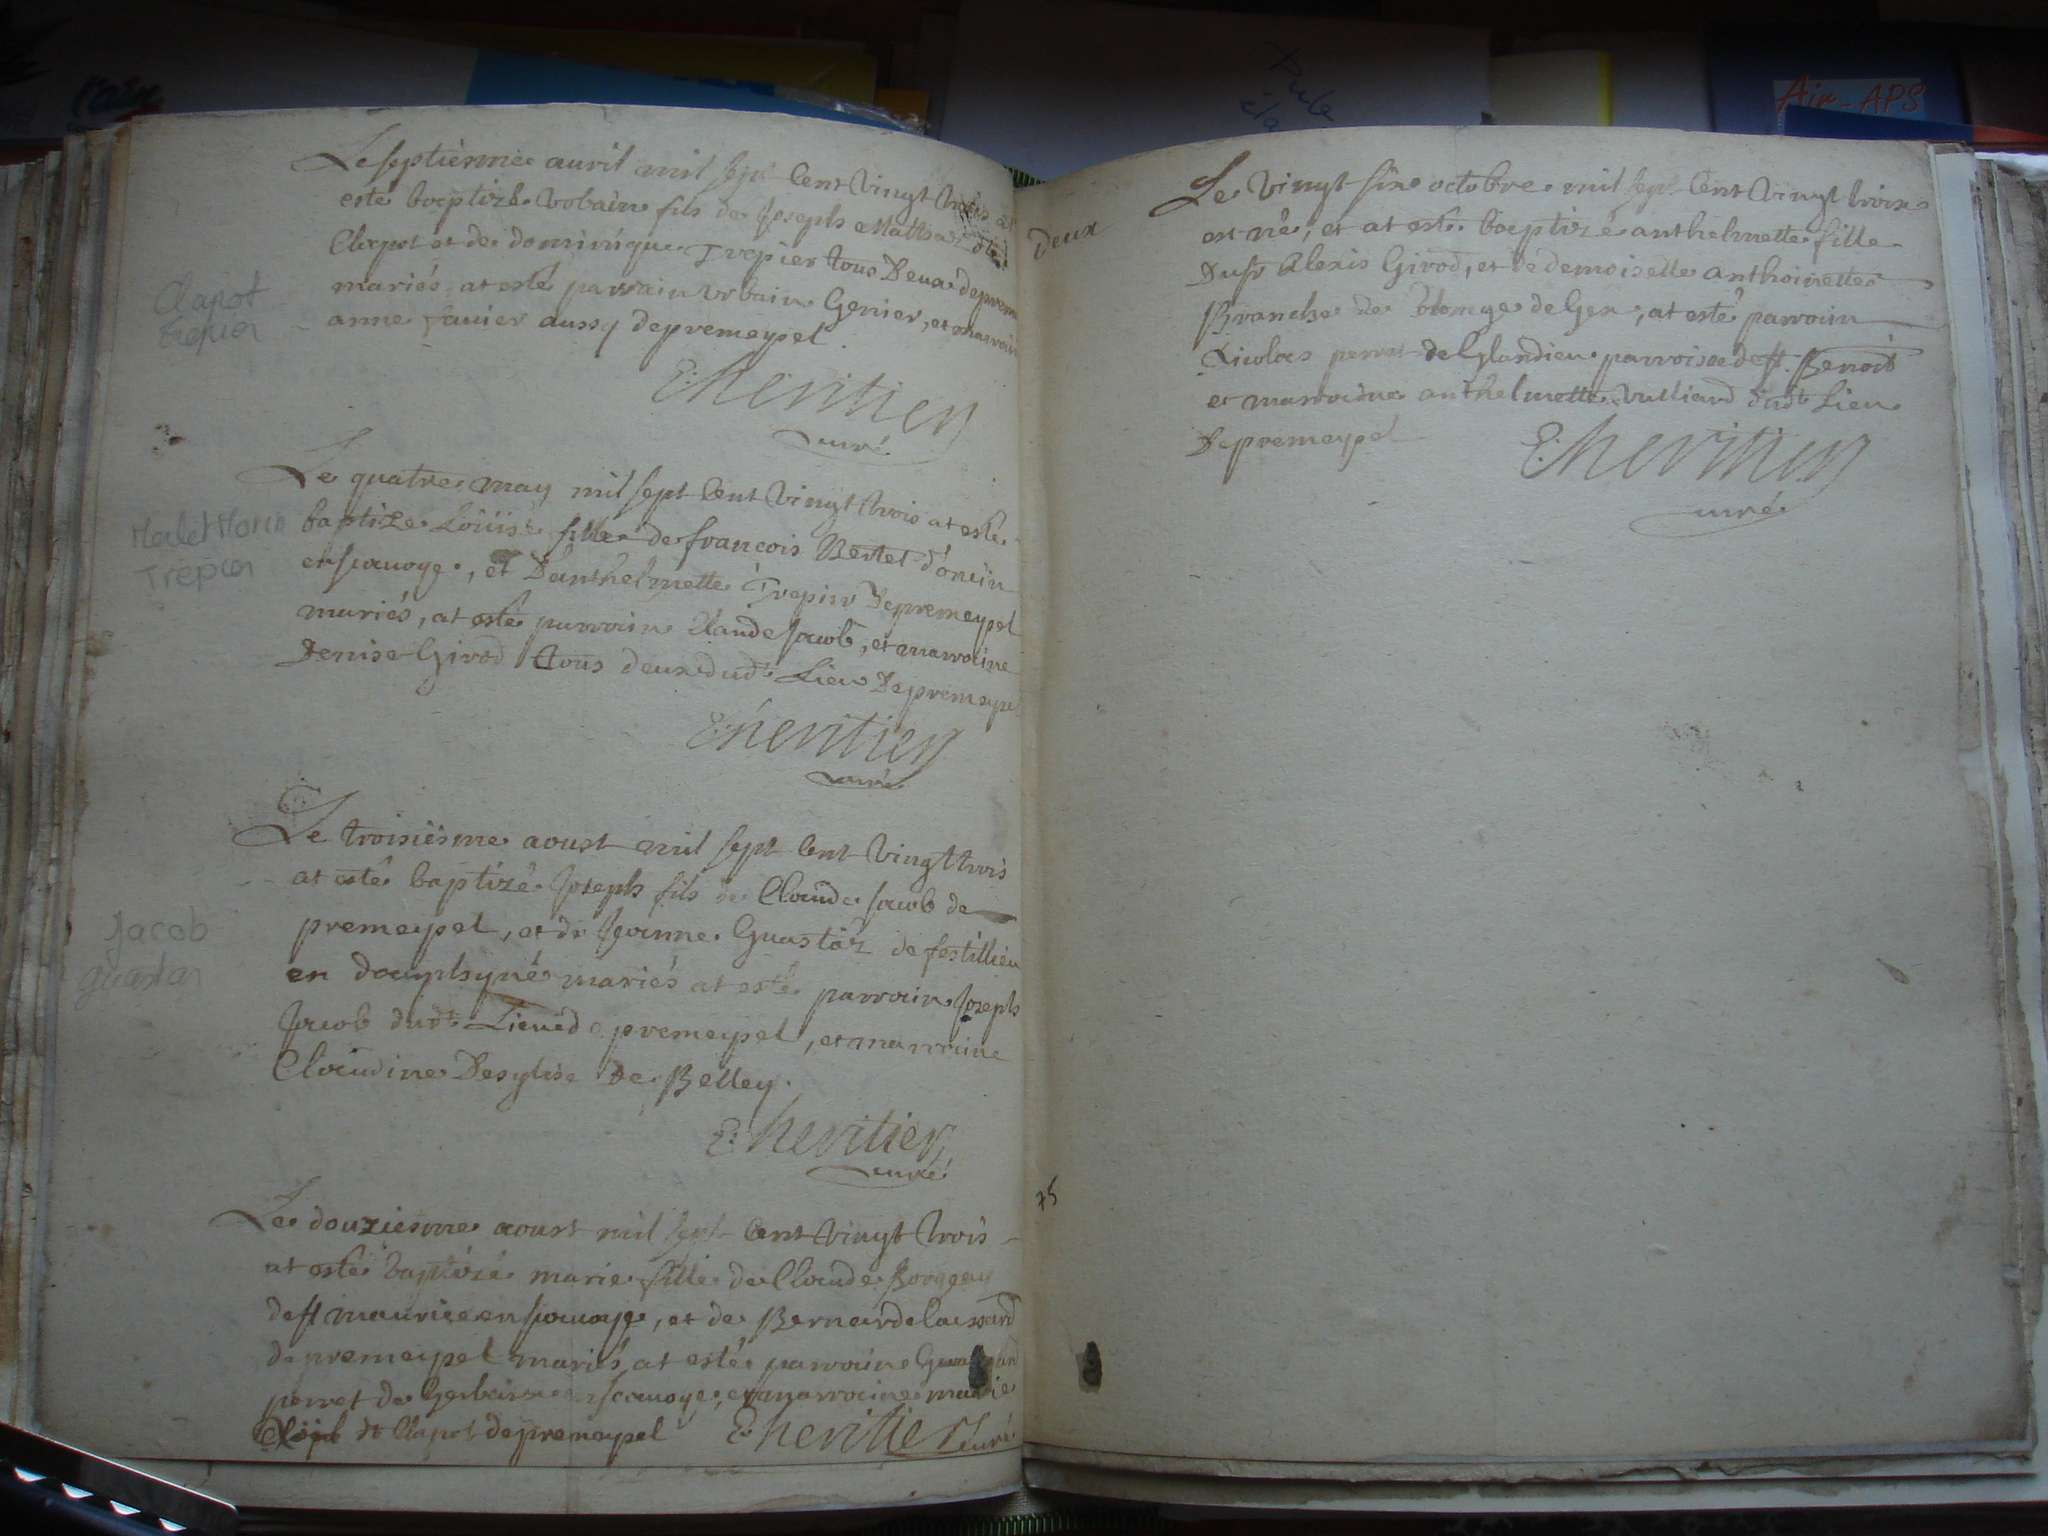 Le septiesme auril mil sept Cent Vingt trois at
esté baptizé Vrbain fils de Joseph Matthieu
Clapot et de dominique Trepier tous Deux de prem
mariés, at esté parrain Vrbain Genier, et marrain
anne fauier aussy de premeysel.
E: heritier
curé
Clapot
trepier
Le quatre may mil sept Cent Vingt trois at esté
baptizé Loüise fille de francois Bertet d'oncin
en sauoye, et D'anthelmette Trepier de premeysel
mariés, at esté parrain Claude Jacob, et marraine
Denise Girod tous deux dudt Lieu De premeysel
E: heritier
curé
Trepier
Le troisiesme aoust mil sept Cent Vingt trois
at esté baptizé Joseph fils de Claude Jacob de
premeysel, et de Jeanne Guastar de festillieu
en dauphyné mariés at esté parrain Joseph
Jacob dudt Lieu de premeysel, et marraine
Claudine Desglise De Belley.
E: heritier
curé
Jacob
guastar
Le douziesme aoust mil sept Cent Vingt trois
at esté baptizé marie fille de Claude
de st maurice en sauoye, et de Bernarde
de premeysel mariés, at esté parraine
perret de Gerbaix en sauoye, et marraine marie
Clapot de premeysel E: heritier curé
deux
Le Vingt six octobre mil sept Cent Vingt trois
est né, et at esté baptizé anthelmette fille
Du sr Alexis Girod, et de demoiselle anthoinette
Branche de de Gex, at esté parrain
Nicolas perret de Glandieu parroisse de st. Benoit
et marraine anthelmette Vulliard dudt Lieu
De premeysel
E: heritier
curé
75
Air-APS